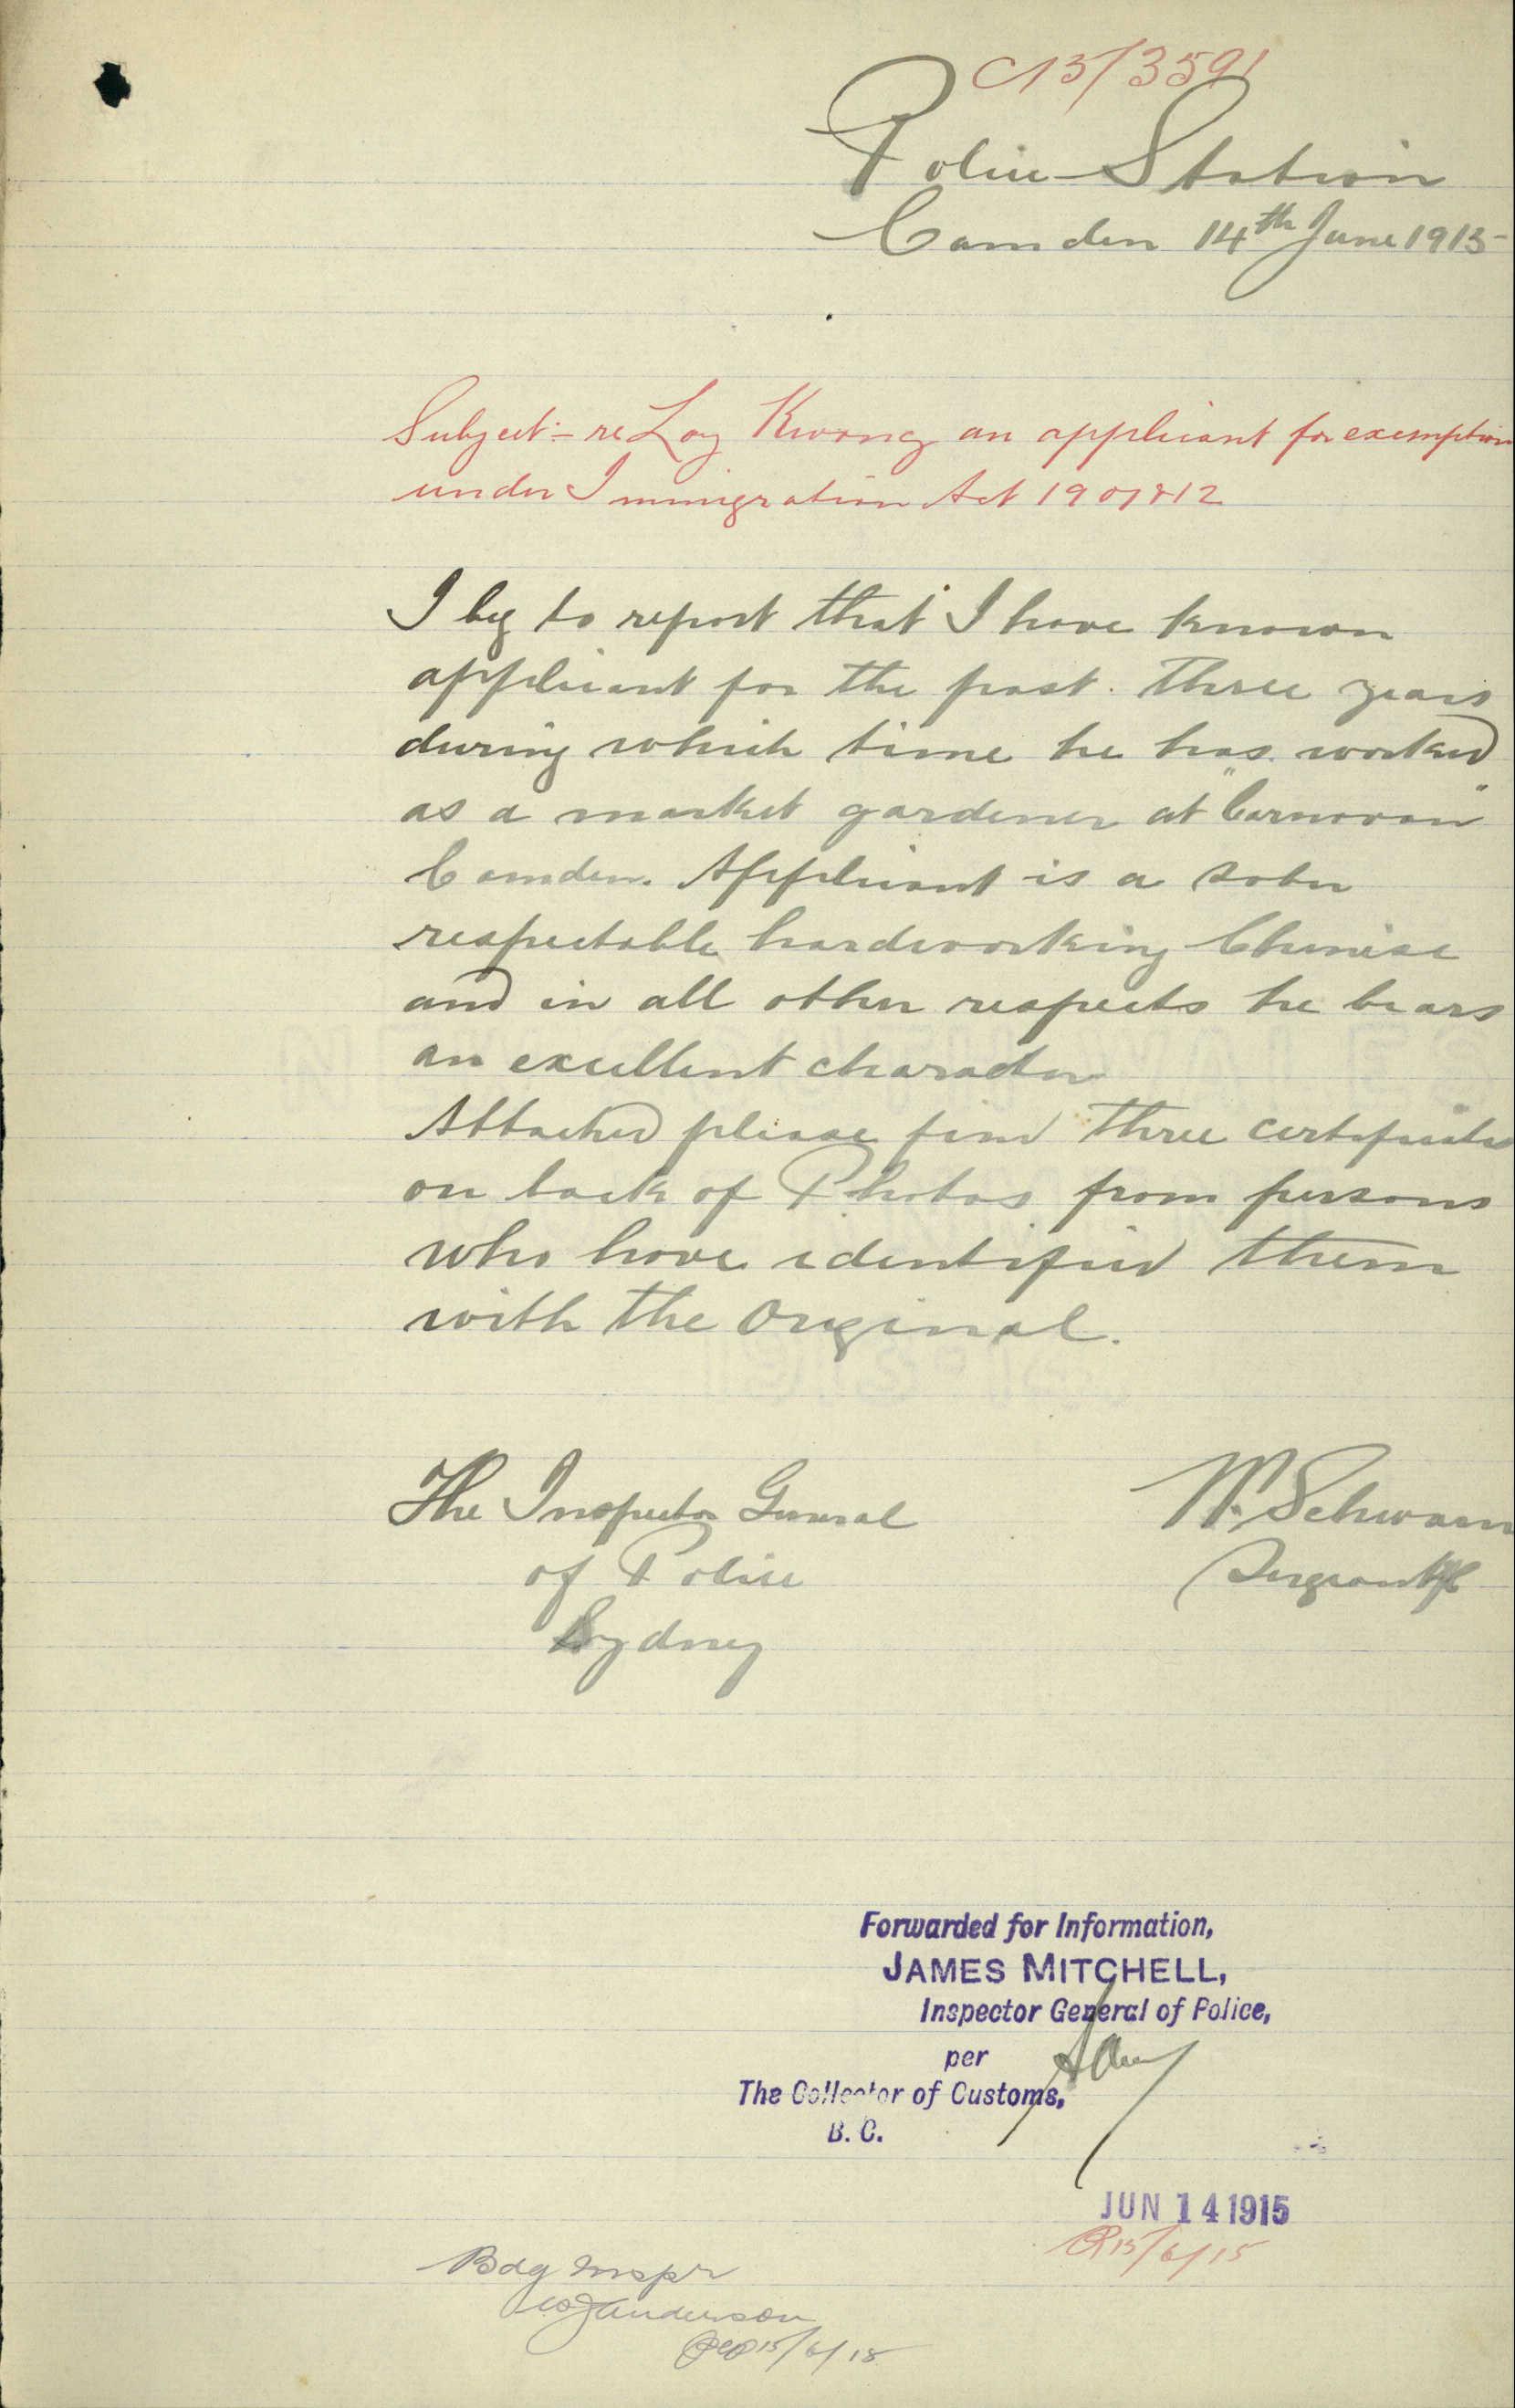 C15/3591
Police Station
Camden 14th June 1915
Subject:- re Loy Kwong an applicant for exemption
under Immigration Act 1901 & 12
I beg to report that I have known
applicant for the past three years
during which time he has worked
as a market gardener at "Carnovan"
Camden. Applicant is a sober
respectable hardworking Chinese
and in all other respects he bears
an excellent character
Attached please find three certificates
on back of Photos from persons
who have identified them
with the Original.
The Inspector General
of Police
Sydney
W. Schwam
Sergeant
Forwarded for Information,
JAMES MITCHELL,
Inspector General of Police,
per
The Collector of Customs,
B. C.
JUN 14 1915
15/6/15
Bdg Inspr
Anderson
15/6/15